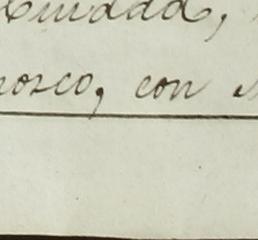 Ciudad,
nosco, con